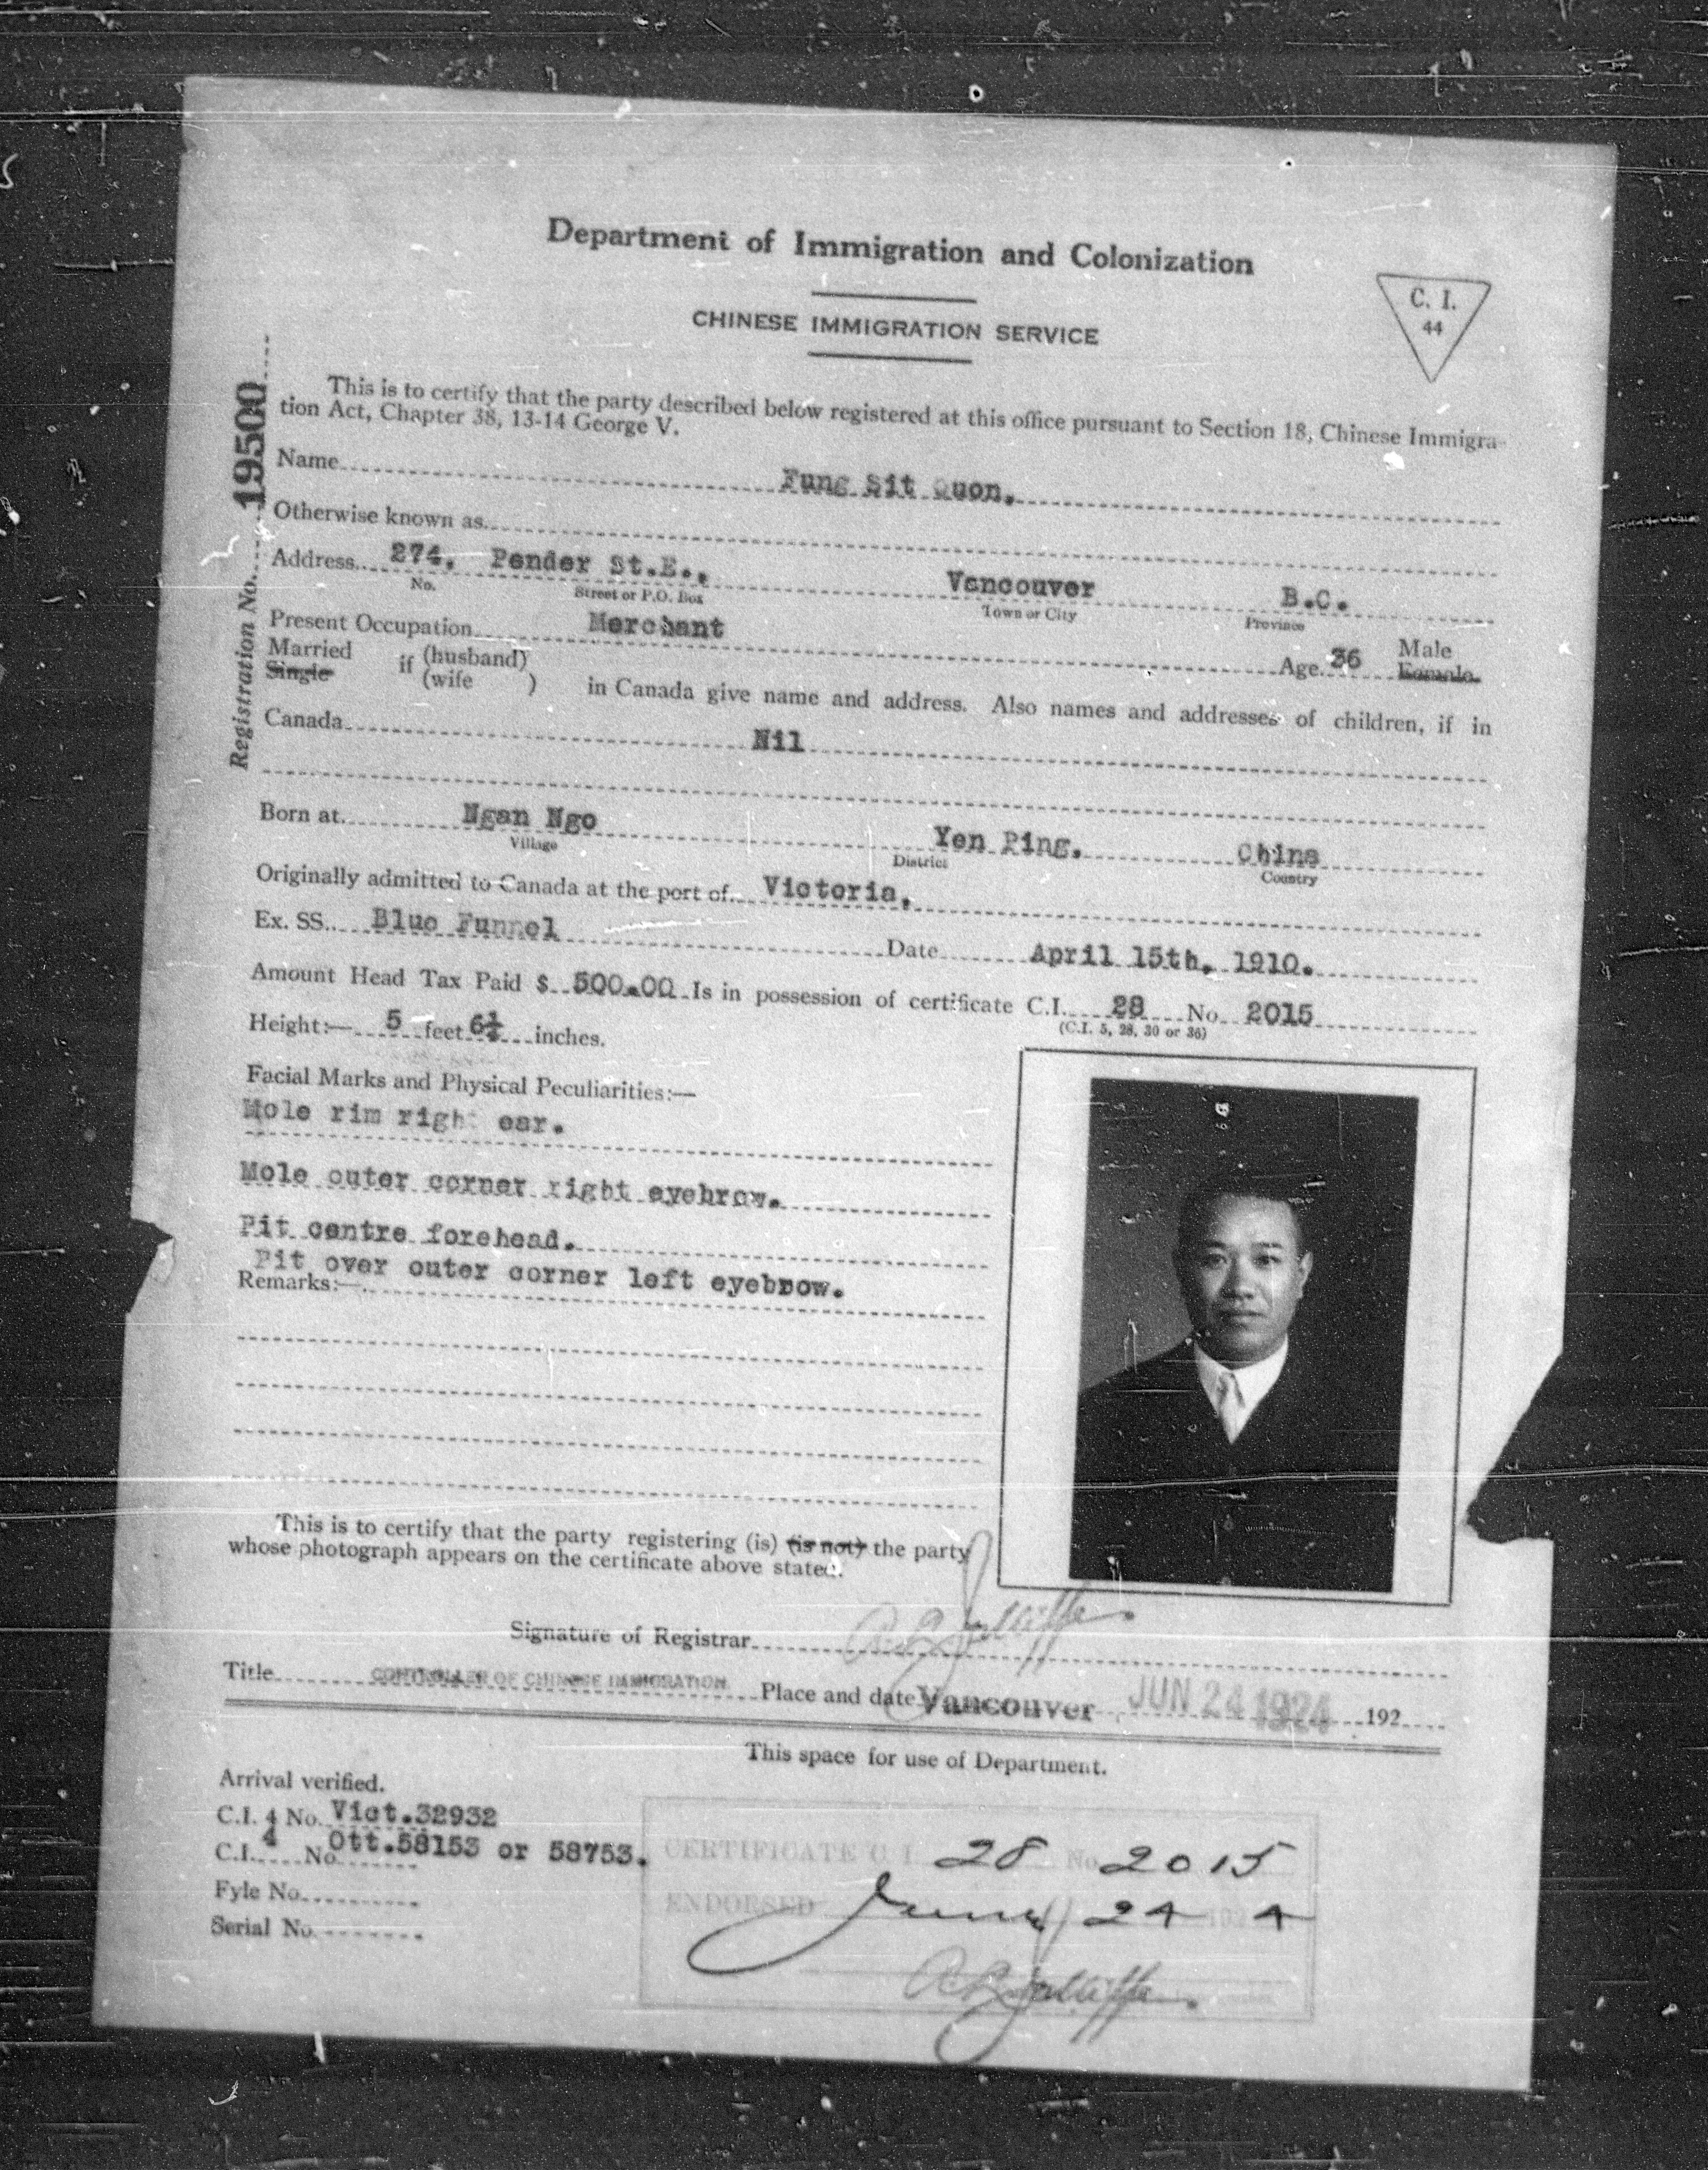 Department of Immigration and Colonization
CHINESE IMMIGRATION SERVICE
C. I.
44
Registration No. 19500
This is to certify that the party described below registered at this office pursuant to Section 18, Chinese Immigra-
tion Act, Chapter 38, 13-14 George V.
Name Fung Sit Quon.
Otherwise known as
Address 274, Pender St.E., Vancouver B.C.
No. Street or P.O. Box Town or City Province
Present Occupation Merchant Age 36 Male
Female
Married
Single if (husband)
(wife ) in Canada give name and address. Also names and addresses of children, if in
Canada Nil
Born at Ngan Ngo Yen Ping. China
Village District Country
Originally admitted to Canada at the port of Victoria.
Ex. SS. Blue Funnel Date April 15th, 1910.
Amount Head Tax Paid $ 500.00 Is in possession of certificate C.I. 28 No. 2015
(C.I. 5, 28, 30 or 36)
Height:— 5 feet 6½ inches.
Facial Marks and Physical Peculiarities:—
Mole rim right ear.
Mole outer corner right eyebrow.
Pit centre forehead.
Pit over outer corner left eyebrow.
Remarks:—
This is to certify that the party registering (is) (is not) the party
whose photograph appears on the certificate above stated.
Signature of Registrar A L Jolliffe.
Title CONTROLLER OF CHINESE IMMIGRATION Place and date Vancouver JUN 24 1924 192
This space for use of Department.
Arrival verified.
C.I. 4 No. Vict.32932
C.I. 4 No. Ott.58153 or 58753.
Fyle No.
Serial No.
CERTIFICATE C I 28 No. 2015
ENDORSED June 24 192 4
A L Jolliffe.